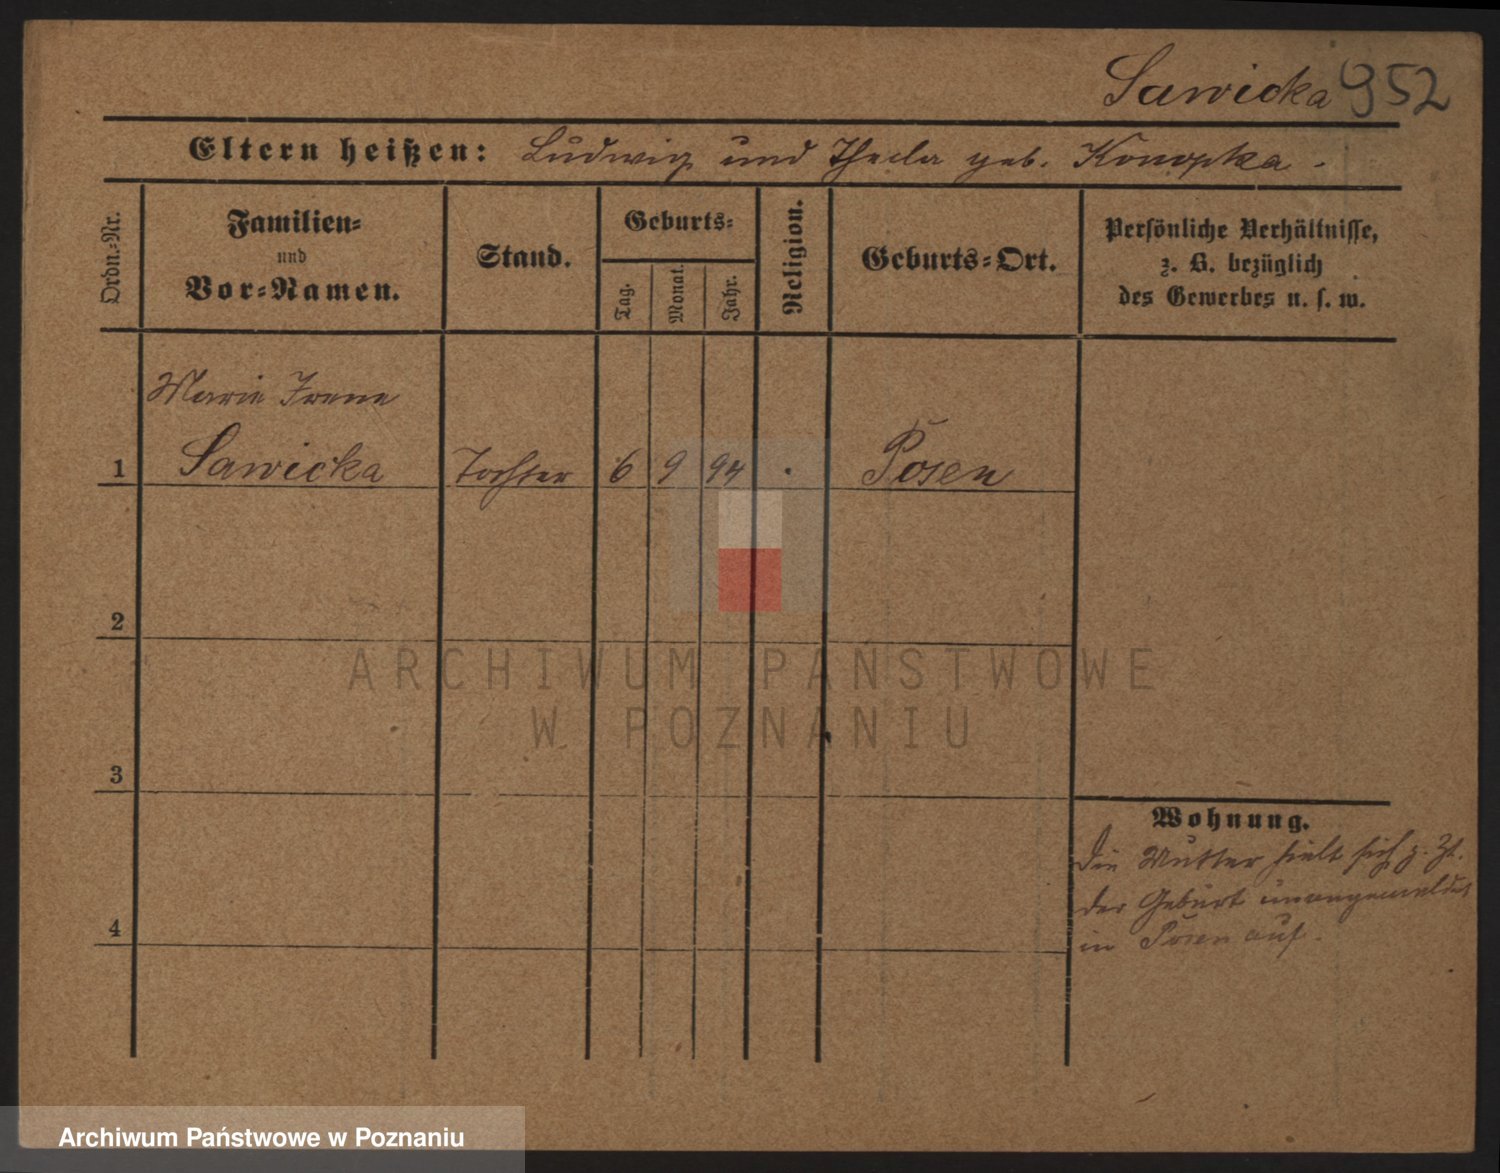 Sawicka 952
Eltern heißen: Ludwig und Thecla geb. Konopka.
Ordn.=Nr.
Familien=
und
Vor=Namen.
Stand.
Geburts=
Tag.
Monat.
Jahr.
Religion.
Geburts=Ort.
Persönliche Verhältnisse,
z. B. bezüglich
des Gewerbes u. s. w.
Marie Irene
1 Sawicka Tochter 6 9 94 . Posen
2
3
4
Wohnung.
Die Mutter hielt sich z. Zt.
der Geburt unangemeldet
in Posen auf.
ARCHIWUM PAŃSTWOWE
W POZNANIU
Archiwum Państwowe w Poznaniu